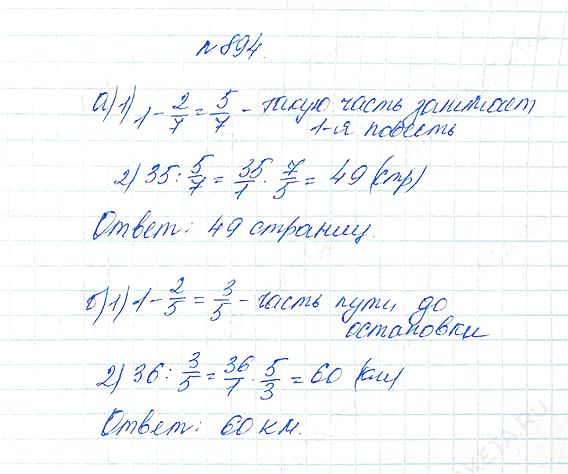 №894.
а) 1) 1 - 2/7 = 5/7 - такую часть занимает
1-я повесть
2) 35 : 5/7 = 35/1 · 7/5 = 49 (стр)
Ответ: 49 страниц.
б) 1) 1 - 2/5 = 3/5 - часть пути до
остановки
2) 36 : 3/5 = 36/1 · 5/3 = 60 (км)
Ответ: 60 км.